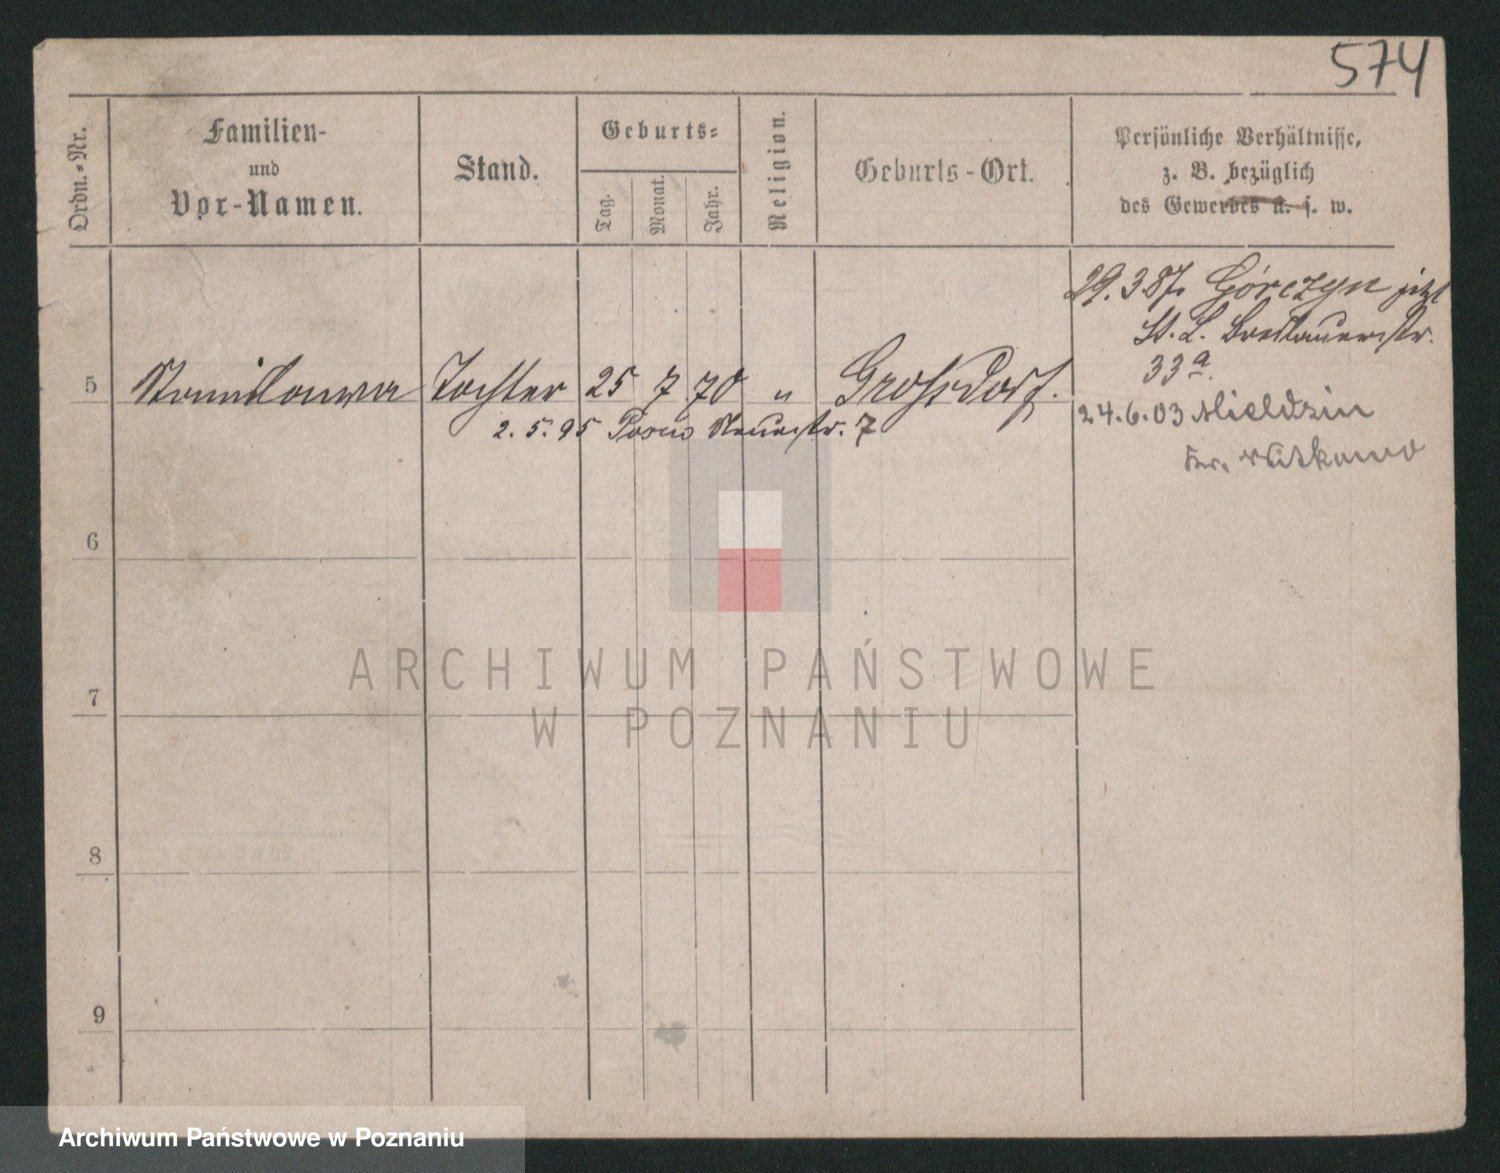 574
Ordn.-Nr.
Familien-
und
Vor-Namen.
Stand.
Geburts-
Tag.
Monat.
Jahr.
Religion.
Geburts-Ort.
Persönliche Verhältnisse,
z. B. bezüglich
des Gewerbes u. s. w.
29.3.87. Górczyn jetzt
St. L. Breslauerstr.
33a.
5 Stanislawa Tochter 25 7 70 " Grossdorf.
2. 5. 95 Posen Neuestr. 7
24.6.03 Mieldzin
Kr. Witkowo
6
7
8
9
ARCHIWUM PAŃSTWOWE
W POZNANIU
Archiwum Państwowe w Poznaniu